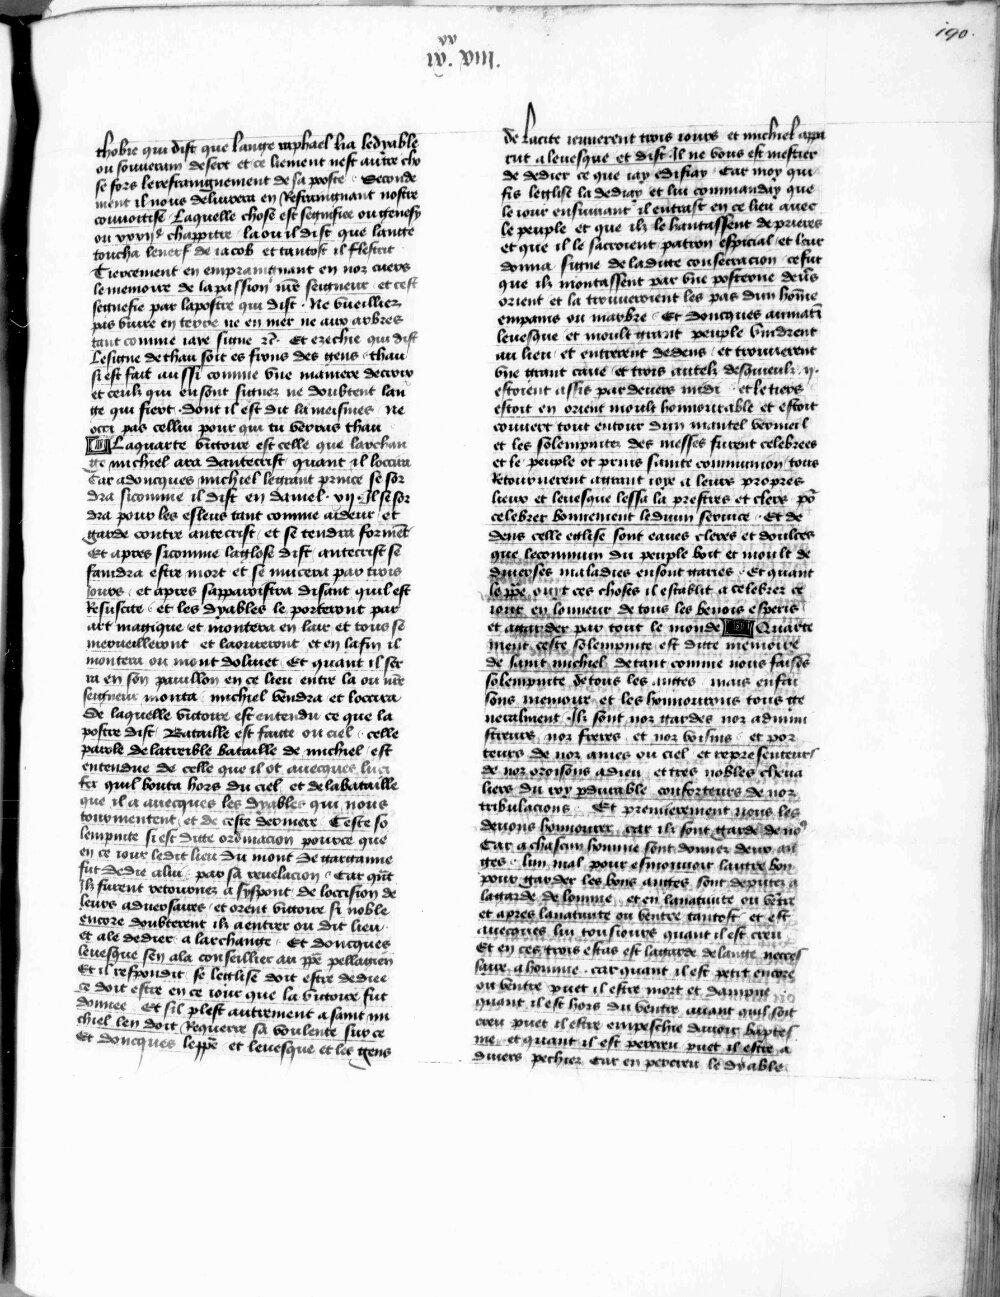 190.
xx
ix. viii.
thobie qui dist que lange raphael lia le dyable
ou souverain desert et ce liement nest autre cho
se fors le refraingnement de sa poste . Seconde
ment il nous delivrera en Refraingnant nostre
couvoitise . Laquelle chose est segnifiee ou genesy
ou chappitre la ou il dist que lange
toucha le nerf de iacob et tantost il flestrit
Tiercement en empraingnant en noz cuers
le memoire de la passion nre seigneur et cest
segnefie par lapostre qui dist . Ne vueilliez
pas nuire en terre ne en mer ne aux arbres
tant comme iaie signe Et ezechie qui dist
Le signe de thau soit es frons des gens thau
si est fait aussi comme vne maniere de croix
et ceulz qui en sont signez ne doubtent lan
ge qui fiert . dont il est dit la meismes ne
occi pas cellui pour qui tu verras thau
La quarte victoire est celle que larchan
ge michiel ara dantecrist quant il loccira
Car adoncques michiel le grant prince se sor
dra sicomme il dist en daniel . Il se sor
dra pour les esleus tant comme aideur et
garde contre antecrist et se tendra forment
Et apres sicomme la glose dist antecrist se
faindra estre mort et se mucera par trois
iours et apres sapparoistra disant quil est
Resuscite et les dyables le porteront par
art magique et montera en lair et tous se
merveilleront et laourront et en la fin il
montera ou mont dolivet Et quant il ser
ra en son paveillon en ce lieu entre la ou nre
seigneur monta michiel vendra et loccira
De laquelle victoire est entendu ce que la
postre dist Bataille est faitte ou ciel celle
parole de la treible bataille de michiel est
entendue de celle que il ot avecques luci
fer quil bouta hors du ciel et de la bataille
que il a avecques les dyables qui nous
tourmentent et de ceste derniere Ceste so
lempnite si est ditte pource que
en ce iour ledit lieu du mont de gargaine
fut dedie a lui par sa revelacion . Car qunt
Ilz furent retournez a syppont de loccision de
leurs adversaires et orent victoire si noble
encore doubterent ilz a entrer ou dit lieu
Et a le dedier a larchange . Et doncques
levesque sen ala conseillier au ppe pellagien
Et il respondit se leglise doit estre dediee
ce doit estre en ce iour que la victoire fut
donnee Et sil plest autrement a saint mi
chiel len doit Requerre sa voulente sur ce
Et doncques le ppe et levesque et les gens
de la cite ieunerent trois iours et michiel appa
rut a levesque et dist . Il ne vous est mestier
de dedier ce que iay edifiay . Car moy qui
fis leglise la dediay et lui commanday que
le iour ensuivant il entrast en ce lieu avec
le peuple et que ilz le hantassent de prieres
et que il le sacroient patron especial et leur
donna signe de la ditte consecracion ce fut
que ilz montassent par vne posterne devs
orient et la trouveroient les pas dun home
empains ou marbre . Et doncques au matin
levesque et moult grant peuple vindrent
au lieu et entrerent dedens et trouverent
vne grant cave et trois autelz desquelz .ij.
estoient assis par devers midi et le tiers
estoit en orient moult honnorable et estoit
couvert tout entour dun mantel vermeil
et les solempnitez des messes furent celebrees
et le peuple ot prins sainte communion tous
Retournerent a grant ioye a leurs propres
lieux et levesque lessa la prestres et clers po
celebrer bonnement le divin service . Et de
dens celle eglise sont eaues cleres et doulces
que le commun du peuple boit et moult de
diverses maladies en sont garies . Et quant
le ppe ouyt ces choses il establit a celebrer ce
iour en lonneur de tous les benois esperis
et a garder par tout le monde Quarte
ment ceste solempnite est ditte memoire
de saint michiel de tant comme nous faisons
solempnite de tous les anges mais en fai
sons memoire et les honnourons tous ge
neralment . Ilz sont noz gardes noz admini
streurs noz freres et noz voisins et por
teurs de noz ames ou ciel et representeurs
de noz oroisons a dieu et tres nobles cheva
liers du roy pdurable conforteurs de noz
tribulacions . Et premierement nous les
devons honnourer car ilz sont garde de no9
Car a chascun homme sont donnez deux an
ges . lun mal pour esmouvoir lautre bon
pour garder les bons anges sont deputez a
la garde de lomme et en la nativite ou ventre
et apres la nativite ou ventre tantost et est
avecques lui tousiours quant il est creu
Et en ces trois estas est la garde de lange neces
saire a homme . car quant il est petit encore
ou ventre puet il estre mort et dampne
quant il est hors du ventre avant quil soit
creu puet il estre empeschie davoir baptes
me et quant il est percreu puet il estre a
divers pechiez Car en percreu le dyable